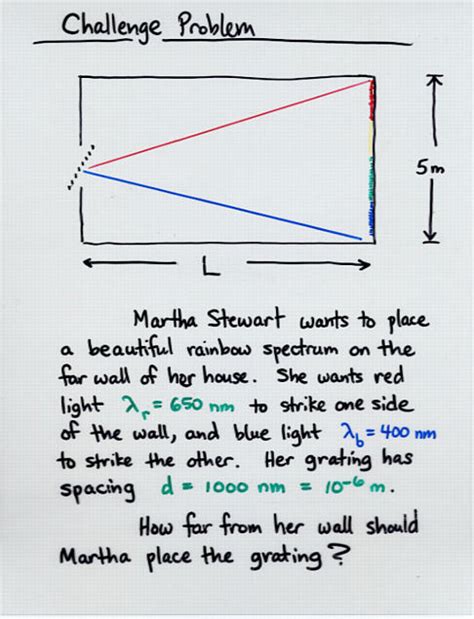 Challenge Problem
5m
L
Martha Stewart wants to place
a beautiful rainbow spectrum on the
far wall of her house. She wants red
light λr = 650 nm to strike one side
of the wall, and blue light λb = 400 nm
to strike the other. Her grating has
spacing d = 1000 nm = 10⁻⁶ m.
How far from her wall should
Martha place the grating?